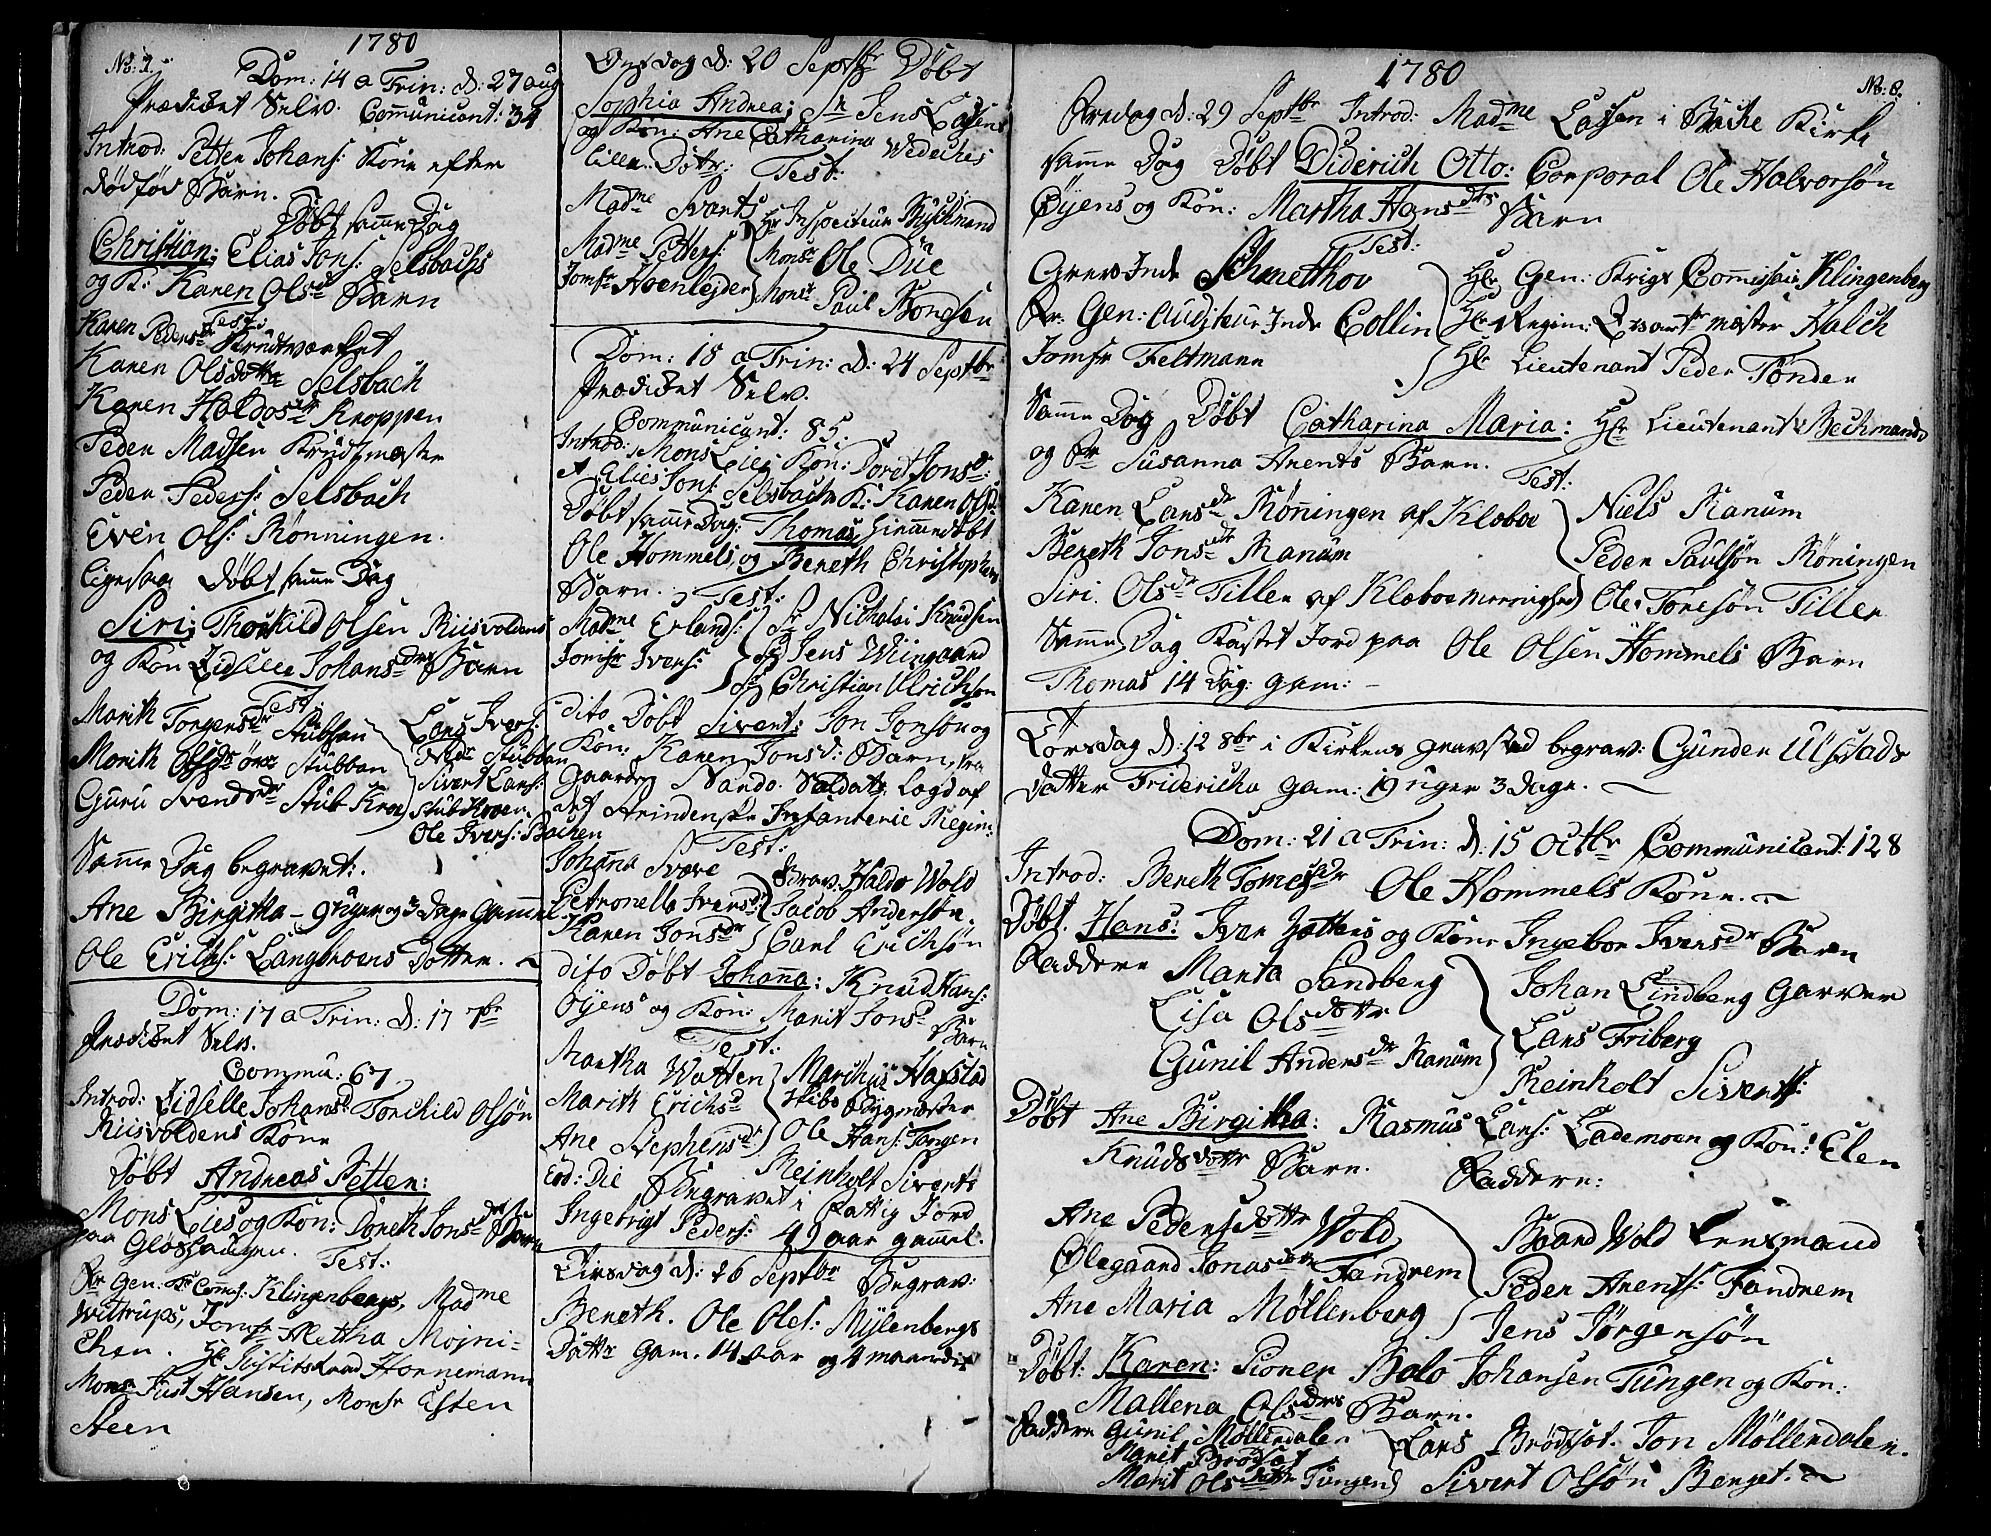 No: 7.
1780
Dom: 14 a Trin: d: 27 aug
Prædiket Selv. Com̅unicant: 34
Introd: Petter Johans: Kone efter
dødfød Barn.
Døbt sam̅e Dag
Christian; Elias Jons: Selsbachs
og K: Karen Olsd Barn
Test:
Karen Pedersdr Krudtværket
Karen Olsdottr Selsbach
Karen Haldosdr Kroppen
Peder Madsen Krudtmæster
Peder Peders: Selsbach
Even Ols: Rønningen.
ligesaa Døbt sam̅e Dag
Siri; Thorkild Olsen Riisvoldens
og Kon Zidselle Johansdrs Barn
Test.
Marith Torgersdr Stubban
Marith Olsdr øvre Stubban
Guru Svendsdr Stub Kroe
Lars Ivers:
Nedr Stubban
Sivert Lars:
Stub Kroen.
Ole Ivers: Bachen
Sam̅e Dag begravet:
Ane Birgitha - 9 uger og 3 Dage Gammel
Ole Erichs: Langbroens Dotter.
Dom: 17 a Trin: d: 17 7br
Prædiket Selv.
Commu: 67
Introd: Zidselle Johansd Torchild Olsøn
Riisvoldens Kone
Døbt Andreas Petter:
Mons Lies og Kon: Doreth Jonsdrs Barn
paa Gløshaugen.
Test:
Fr Gen: Kr Com̅s: Klingenbergs, Madme
Wittrups, Jomfr Aletha Mojni-
chen. Hr Justitsraad Hornemann
Monsr Just Hansen, Monsr Esten
Steen
Onsdag d: 20 Septbr Døbt
Sophia Andrea; Sr Jens Lassens
og Kon: Ane Catharina Wedeches
lille Dottr: Test:
Madme Svarts
Madme Petters:
Jomfr Hoenlejder
Hr Inspecteur Buschmand
Monsr Ole Due
Monsr Paul Bondsen
Dom: 18 a Trin: d: 24 Septbr
Prædiket Selv.
Communicant: 85:
Introd: Mons Lies Kon: Doret Jonsd:
Elies Jons: Selsbachs K: Karen Olsd.
Døbt sam̅e Dag: Thomas, hiem̅edøbt
Ole Hommels, og Bereth Christophers
Barn. Test:
Madme Erlands:
Jomfr Ivers:
Sr Nicholai Knudsen
Sr Jens Wingaard
Sr Christian Ulrichsøn
dito Døbt Sivert: Jon Jonsøn og
Kon: Karen Jonsd: Barn, fra
Gaarden Sando. Saldat Logd af
det Strindenske Infanterie Regim:
Test:
Johan̅a Svære
Petronella Iversd:
Karen Jonsdr
Brav Haldo Wold
Jacob Andersøn.
Carl Erichsøn
dito Døbt Johan̅a: Knud Hans:
Øyens og Kon: Marit Jonsd
Barn
Test:
Martha Watten
Marith Erichsd
Ane Stephensdr
Marchus Hafstad
Skibs Bygmester
Ole Hans: Tangen
Reinholt Siverts
Eod: Die Begravet i
Ingebrigt Peders: Fattig Jord
49 aar gammel.
Tirsdag d: 26 Septbr Begrav:
Bereth. Ole Oles: Mylenbergs
Dattr Gam. 14 aar og 4 maander
1780
No: 8.
Fredag d: 29 Septbr Introd: Madme Lassen i Bache Kirke
sam̅e Dag Døbt Diderich Otto: Corporal Ole Halvorsøn
Øyens og Kon: Martha Hansdtrs Barn
Test:
Grevs Inde Schmethov
Fr: Gen: Auditeur Inde Collin
Jomfr Feltmann
Hr Gen: Krigs Com̅issair Klingenberg
Hr Regim: Qvartr mæster Halch
Hr Lieutenant Peder Tønder
Sam̅e Dag Døbt Catharina Maria: Hr Lieutenant Bechmands
og Fr Susanna Arents Barn.
Test:
Karen Larsdr Rønningen af Klæboe
Bereth Jonsdr Ranum
Siri Olsdr Tiller af Klæboe
Niels Ranum
Peder Paulsøn Røningen
Ole Toresøn Tiller
Sam̅e Dag Kastet Jord paa Ole Olsen Hommels Barn
Thomas 14 Dag: gam: -
Lørsdag d: 12 8br i Kirkens gravsted begrav: Gunder Ulstads
datter Fridericha gam: 19 uger 3 dage.
Dom: 21 a Trin: d: 15 Octbr Communicant: 128
Introd: Bereth Tomesdr Ole Hommels Kone.
Døbt. Hans: Iver Hottens og Kone Ingebor Iversdr Barn
Faddere Marta Sandberg
Lisa Olsdottr
Gunil Andersdr Ranum
Johan Lindberg Garver
Lars Friberg
Reinholt Siverts:
Døbt Ane Birgitha: Rasmus Lars: Lademoen og Kon: Elen
Knudsdottr Barn. Faddere:
Ane Pedersdottr Wold
Ølegaard Jonasdtr Fandrem
Ane Maria Møllenberg
Baard Wold Lensmand
Peder Arents: Fandrem
Jens Jørgensøn
Døbt: Karen: Pioner Bolo Johansen Tungen og Kon:
Mallena Olsdrs Barn.
Faddere Gunil Møllerdalen
Marit Brødsøt
Marit Olsdattr Tungen
Lars Brødsøt. Jon Møllerdalen.
Sivert Olsøn Berget.